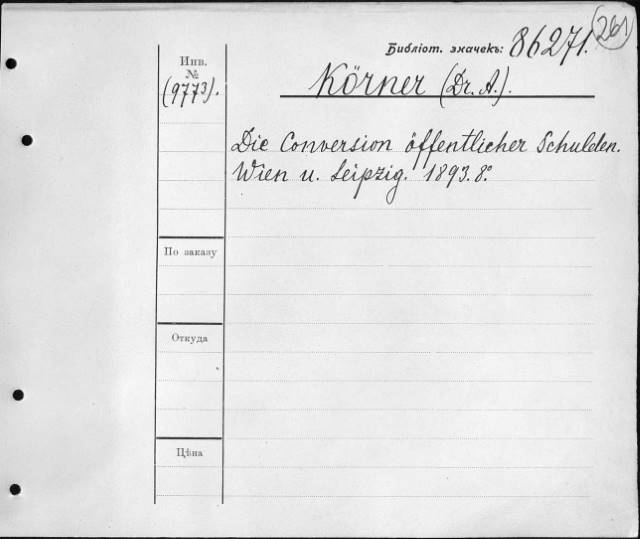 Библіот. значекъ: 86271. (261)
Инв.
№
(9773).
Körner (Dr. A.).
Die Conversion öffentlicher Schulden.
Wien u. Leipzig. 1893. 8°.
По заказу
Откуда
Цѣна